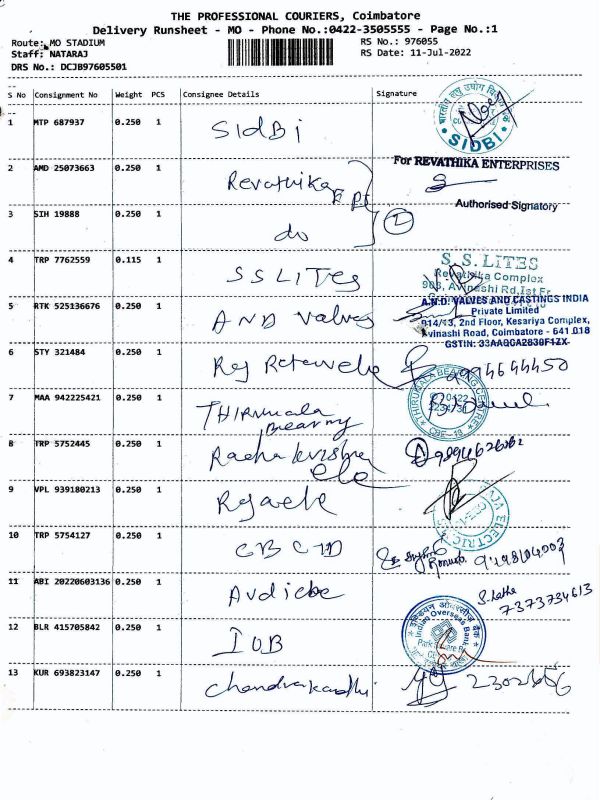 THE PROFESSIONAL COURIERS, Coimbatore
Delivery Runsheet - MO - Phone No.:0422-3505555 - Page No.:1
Route: MO STADIUM RS No.: 976055
Staff: NATARAJ RS Date: 11-Jul-2022
DRS No.: DCJB97605501
S No Consignment No Weight PCS Consignee Details Signature
1 MTP 687937 0.250 1 SIdBi
भारतीय लघु उद्योग विकास
SIDBI
2 AMD 25073663 0.250 1 Revathika
For REVATHIKA ENTERPRISES
Authorised Signatory
3 SIH 19888 0.250 1 do 2
4 TRP 7762559 0.115 1 SS LITes
S. S. LITES
Revathika Complex
Avinashi Rd, Ist Fr
5 RTK 525136676 0.250 1 AND Valves
A.N.D. VALVES AND CASTINGS INDIA
Private Limited
914/13, 2nd Floor, Kesariya Complex,
Avinashi Road, Coimbatore - 641 018
GSTIN: 33AAQCA2830F1ZX
6 STY 321484 0.250 1 9994644450
7 MAA 942225421 0.250 1 THIRUMala bearing
THIRUMALA BEARING CENTRE
CBE-18
8 TRP 5752445 0.250 1 Radha krishna ele
9 VPL 939180213 0.250 1 Raja ele
RAJA ELECTRIC
10 TRP 5754127 0.250 1 CBCID
11 ABI 20220603136 0.250 1
S. latha
7373734613
12 BLR 415705842 0.250 1 IOB
इण्डियन ओवरसीज बैंक
Indian Overseas Bank
13 KUR 693823147 0.250 1 Chandrakandhi